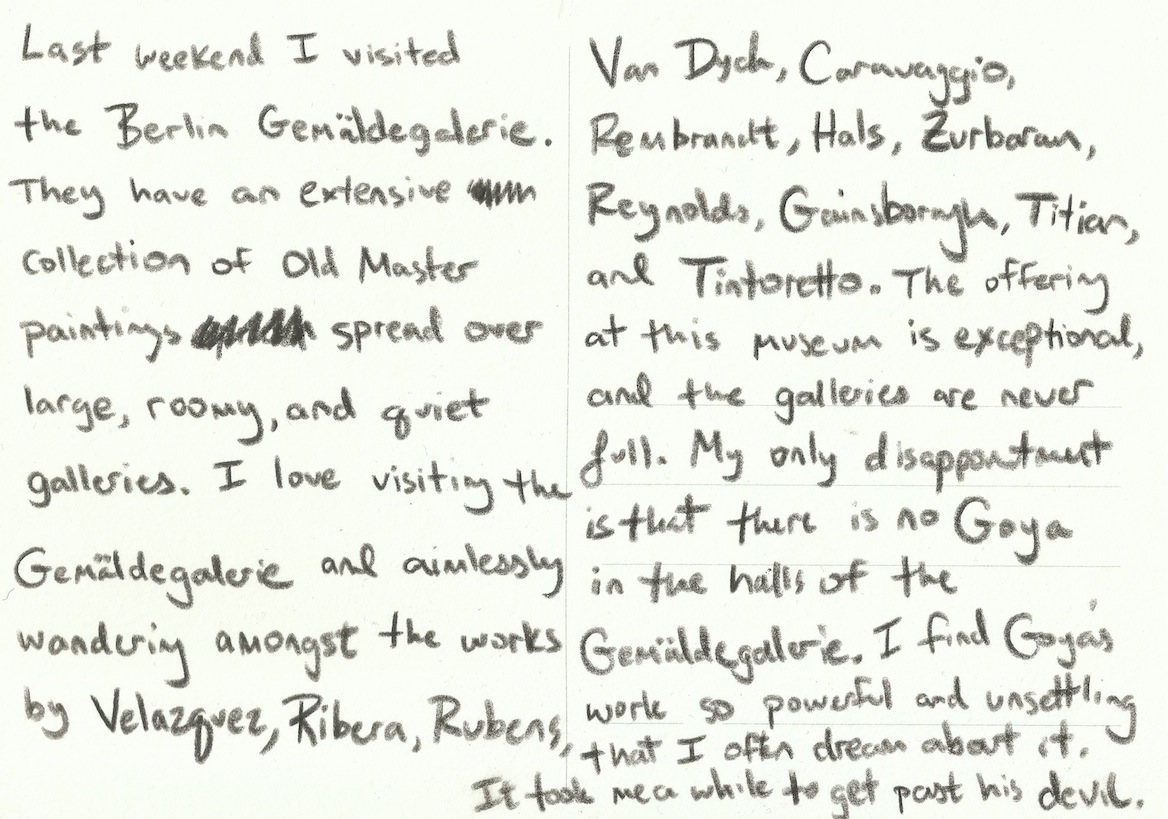 Last weekend I visited
the Berlin Gemäldegalerie.
They have an extensive
collection of Old Master
paintings spread over
large, roomy, and quiet
galleries. I love visiting the
Gemäldegalerie and aimlessly
wandering amongst the works
by Velazquez, Ribera, Rubens,
Van Dyck, Caravaggio,
Rembrandt, Hals, Zurbaran,
Reynolds, Gainsborough, Titian,
and Tintoretto. The offering
at this museum is exceptional,
and the galleries are never
full. My only disappointment
is that there is no Goya
in the halls of the
Gemäldegalerie. I find Goya's
work so powerful and unsettling
that I often dream about it.
It took me a while to get past his devil.